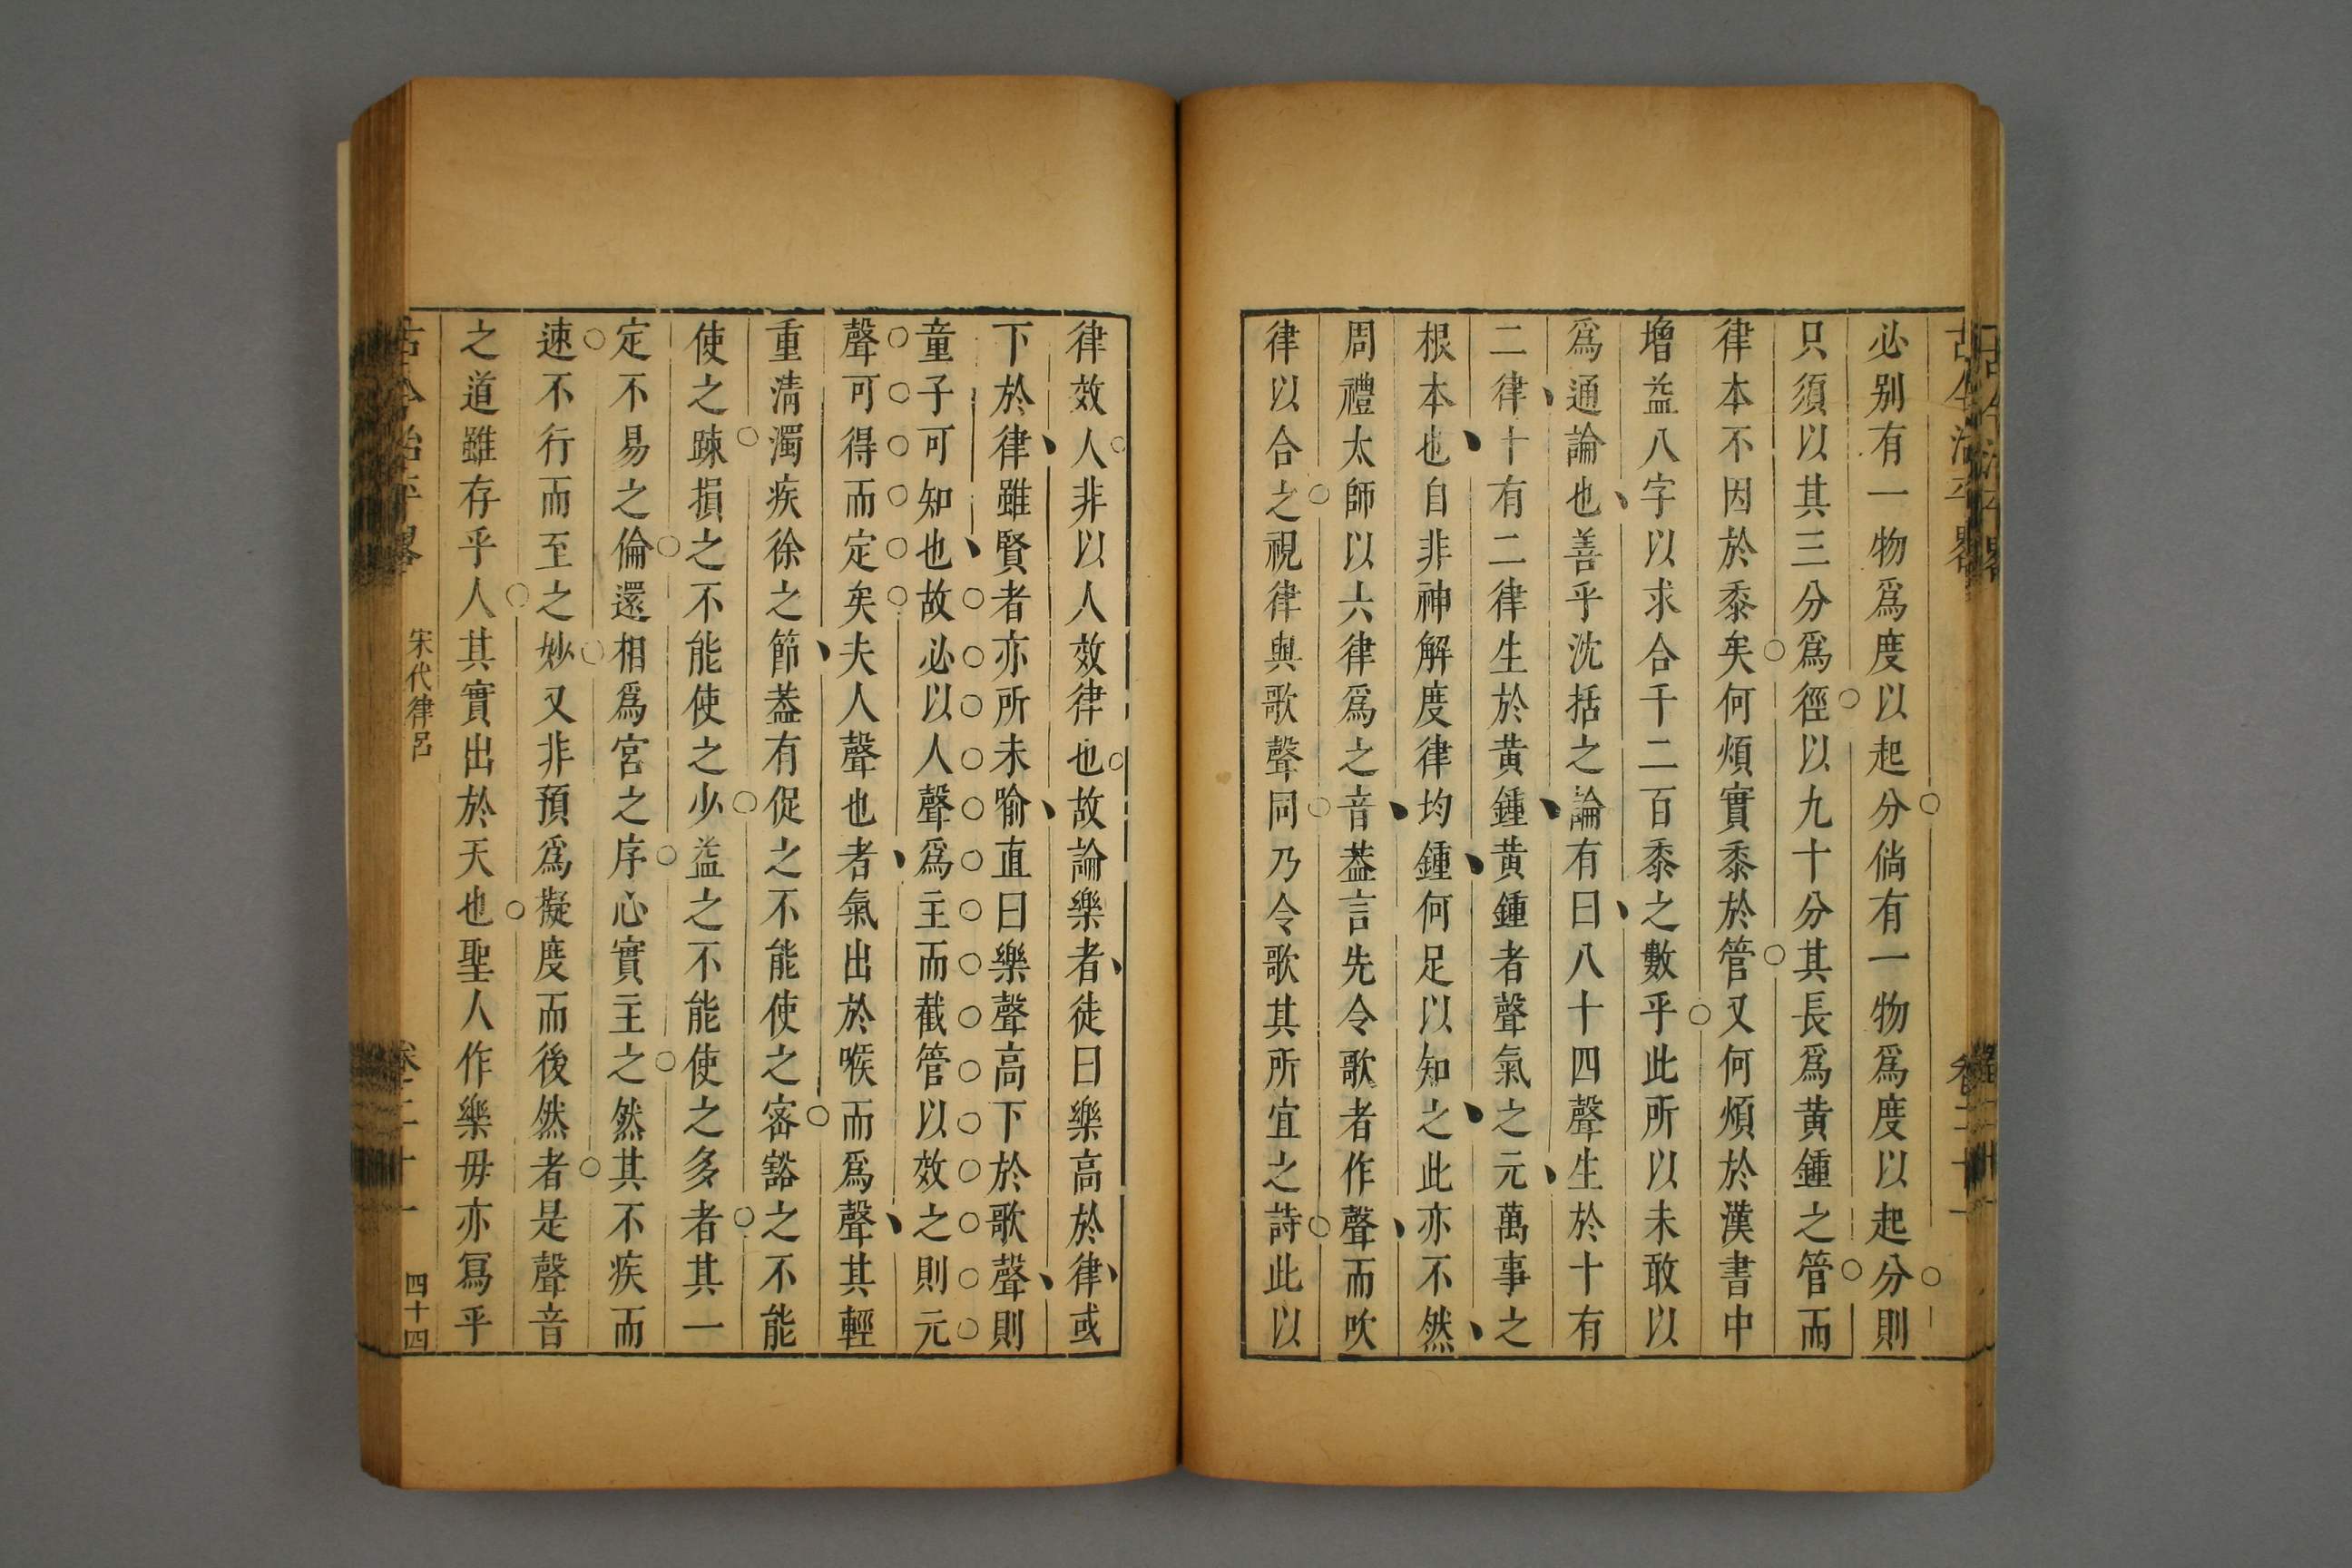 必别有一物爲度以起分倘有一物爲度以起分則
只須以其三分爲徑以九十分其長爲黄鍾之管而
律本不因於黍矣何煩實黍於管又何煩於漢書中
增益八字以求合千二百黍之數乎此所以未敢以
爲通論也善乎沈括之論有曰八十四聲生於十有
二律十有二律生於黄鍾黄鍾者聲氣之元萬事之
根本也自非神解度律均鍾何足以知之此亦不然
周禮太師以六律爲之音葢言先令歌者作聲而吹
律以合之視律與歌聲同乃令歌其所宜之詩此以
律效人非以人效律也故論樂者徒曰樂高於律或
下於律雖賢者亦所未喻直曰樂聲高下於歌聲則
童子可知也故必以人聲爲主而截管以效之則元
聲可得而定矣夫人聲也者氣出於喉而爲聲其輕
重清濁疾徐之節葢有促之不能使之密豁之不能
使之踈損之不能使之少益之不能使之多者其一
定不易之倫還相爲宮之序心實主之然其不疾而
速不行而至之妙又非預爲擬度而後然者是聲音
之道雖存乎人其實出於天也聖人作樂毋亦寫乎
古今治平畧 宋代律呂 卷二十一 四十四